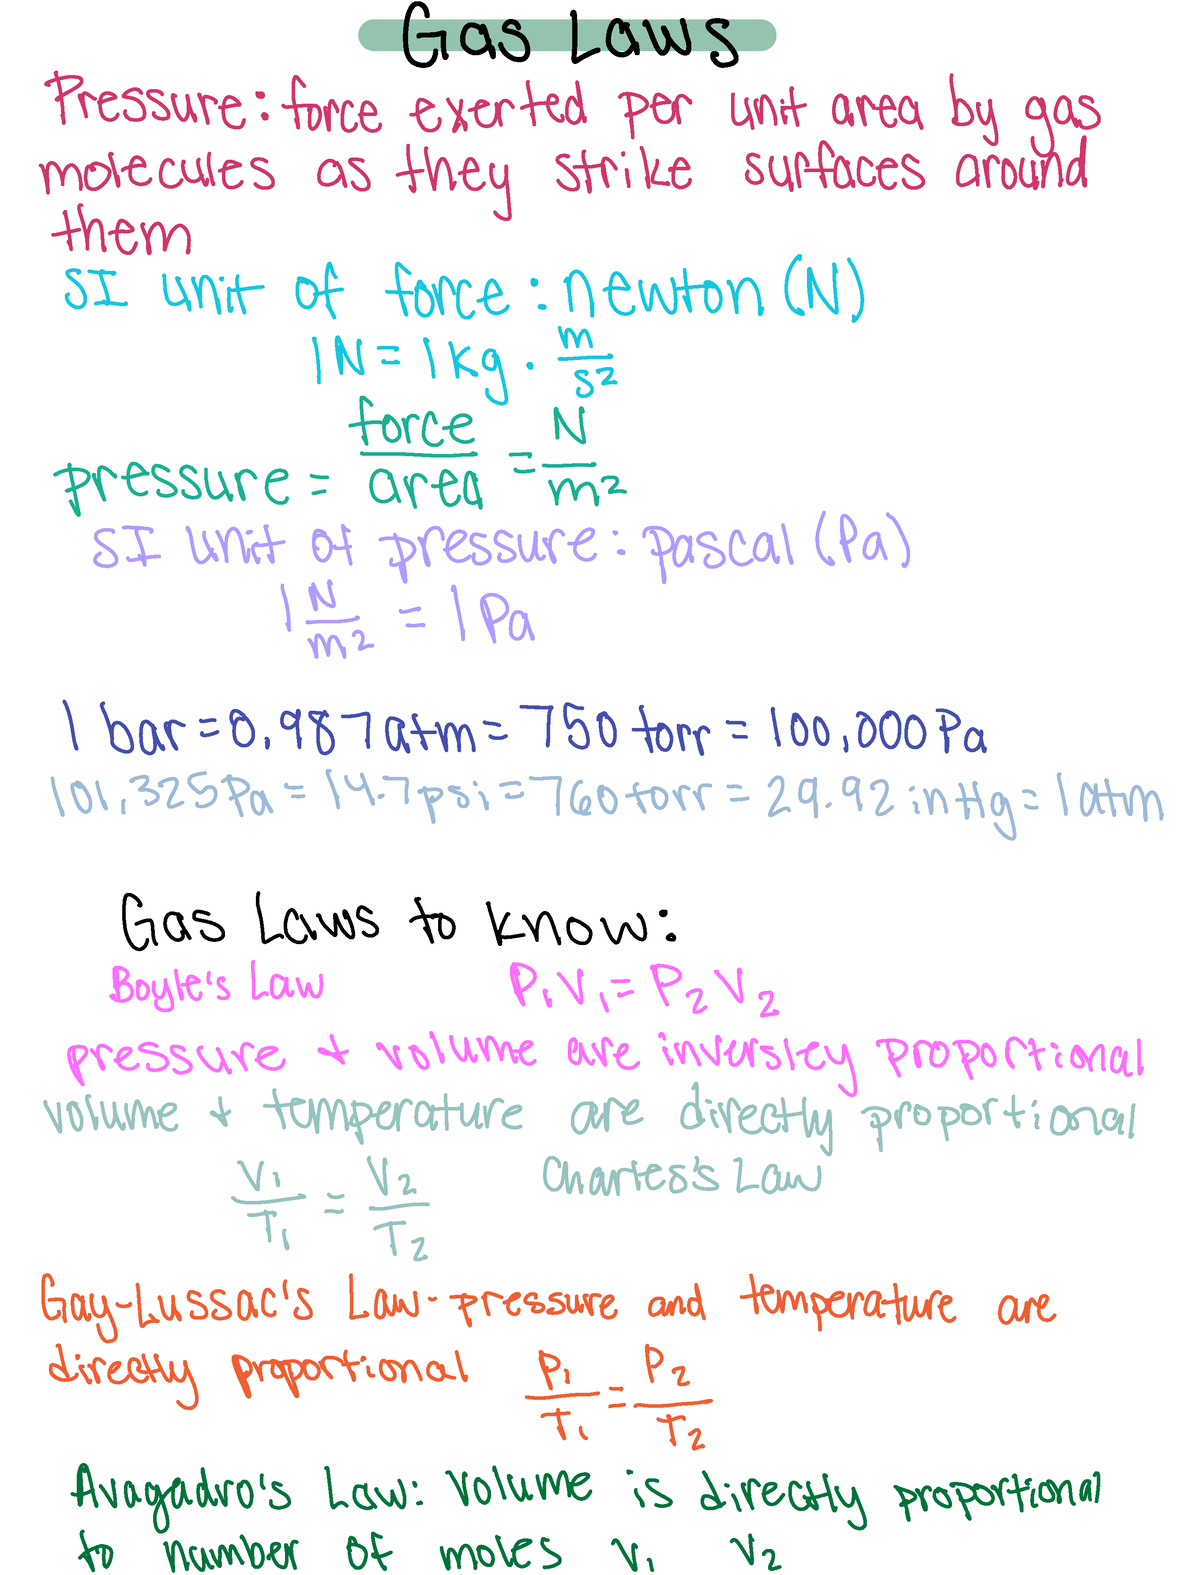 Gas Laws
Pressure: force exerted per unit area by gas
molecules as they strike surfaces around
them
SI unit of force: newton (N)
1N = 1kg · m/s²
pressure = force/area = N/m²
SI unit of pressure: pascal (Pa)
1 N/m² = 1 Pa
1 bar = 0.987 atm = 750 torr = 100,000 Pa
101,325 Pa = 14.7 psi = 760 torr = 29.92 in Hg = 1 atm
Gas Laws to know:
Boyle's Law P₁V₁ = P₂V₂
pressure + volume are inversley proportional
volume + temperature are directly proportional
V₁/T₁ = V₂/T₂ Charles's Law
Gay-Lussac's Law - pressure and temperature are
directly proportional P₁/T₁ = P₂/T₂
Avagadro's Law: volume is directly proportional
to number of moles V₁ V₂